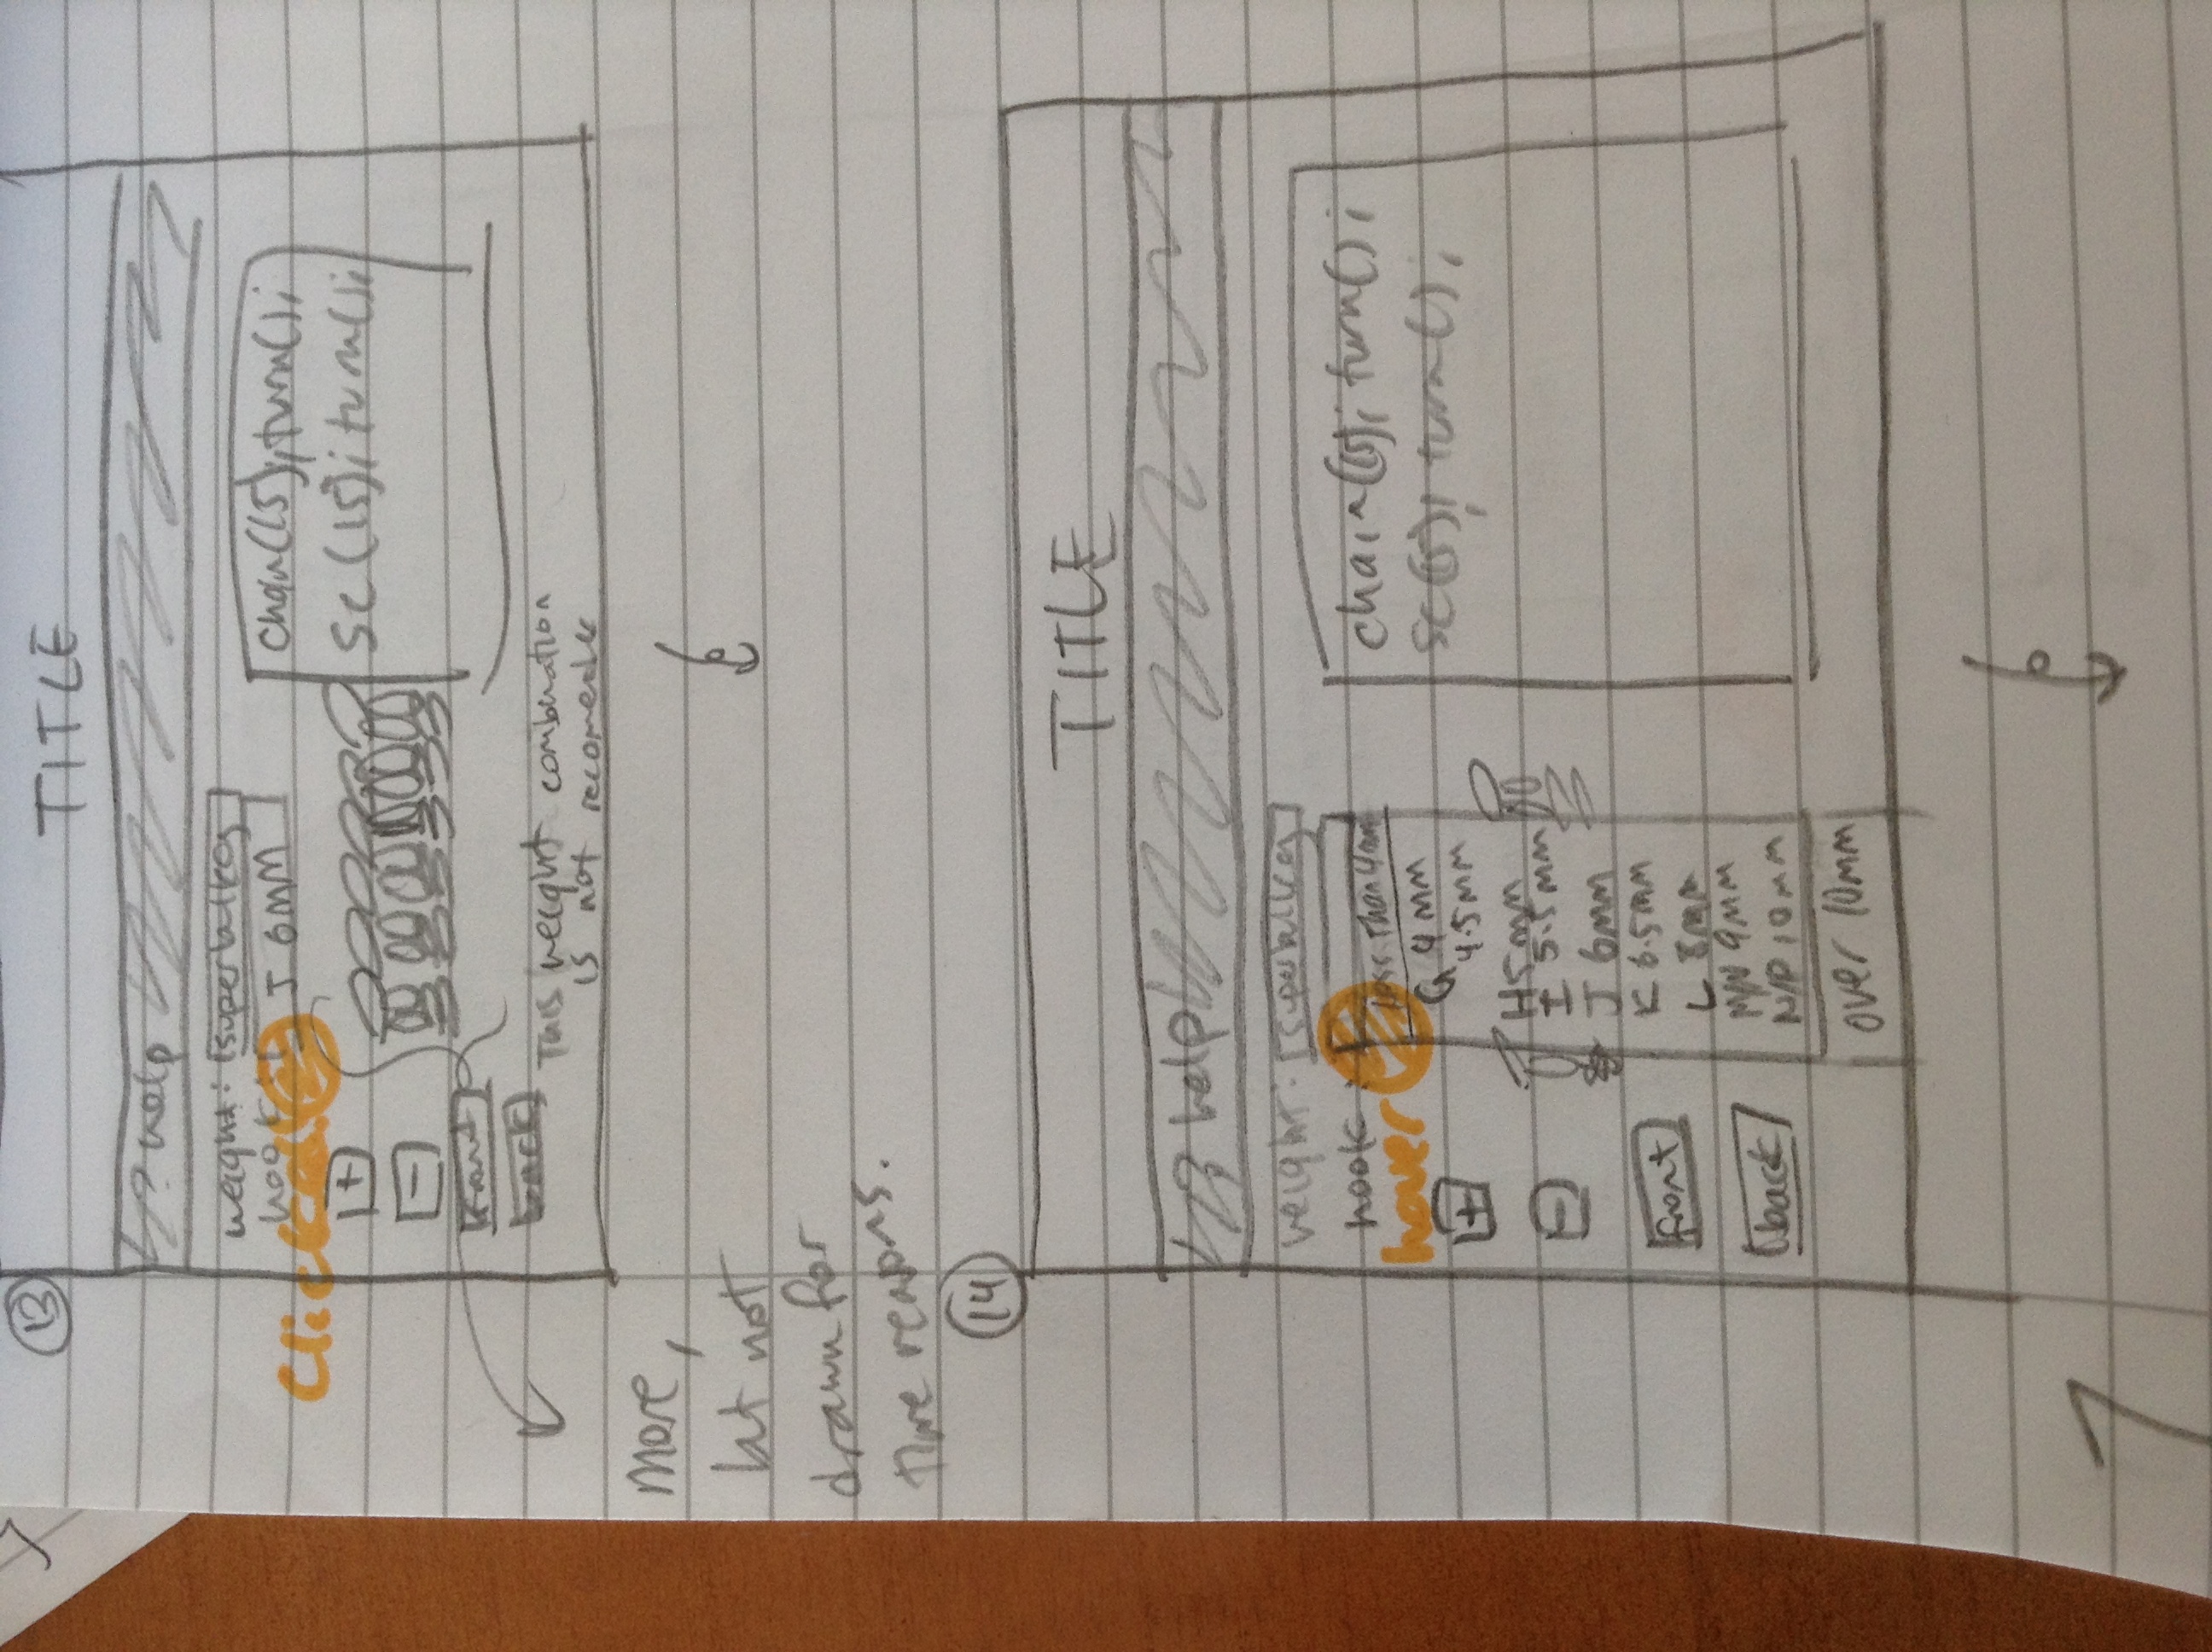 13
TITLE
? help
weight: superbulky
hook: J 6MM
Clicked
chain(15); turn();
+
sc(15); turn();
-
front
back
This weight combination
is not recomended
more,
but not
drawn for
time reasons.
14
TITLE
? help
weight: superbulky
hook:
less than 4mm
hover
G 4 mm
4.5mm
+
H 5mm
I 5.5mm
-
J 6mm
K 6.5mm
front
L 8mm
M/N 9mm
back
N/P 10mm
over 10mm
chain(15); turn();
sc(15); turn();